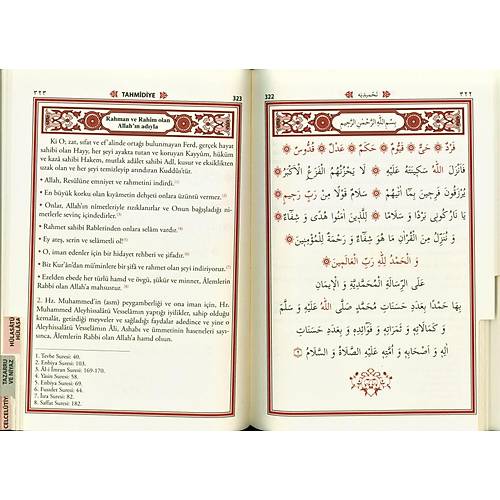 ٣٢٣
TAHMİDİYE
323
Rahman ve Rahîm olan
Allah'ın adıyla
Ki O; zat, sıfat ve ef'alinde ortağı bulunmayan Ferd, gerçek hayat
sahibi olan Hayy, her şeyi ayakta tutan ve koruyan Kayyûm, hüküm
ve kazâ sahibi Hakem, mutlak adâlet sahibi Adl, kusur ve eksiklikten
uzak olan ve her şeyi temizleyip arındıran Kuddûs'tür.
• Allah, Resûlüne emniyet ve rahmetini indirdi.(1)
• En büyük korku olan kıyametin dehşeti onlara üzüntü vermez.(2)
• Onlar, Allah'ın nimetleriyle rızıklanırlar ve Onun bağışladığı ni-
metlerle sevinç içindedirler.(3)
• Rahmet sahibi Rablerinden onlara selâm vardır.(4)
• Ey ateş, serin ve selâmetli ol!(5)
• O, iman edenler için bir hidayet rehberi ve şifadır.(6)
• Biz Kur'ân'dan mü'minlere bir şifâ ve rahmet olan şeyi indiriyoruz.(7)
• Ezelden ebede her türlü hamd ve övgü, şükür ve minnet, Âlemlerin
Rabbi olan Allah'a mahsustur.(8)
2. Hz. Muhammed'in (asm) peygamberliği ve ona iman için, Hz.
Muhammed Aleyhissalâtü Vesselâmın yaptığı iyilikler, sahip olduğu
kemalât, getirdiği meyveler ve sağladığı faydalar adedince ve yine o
Aleyhissalâtü Vesselâmın Âli, Ashabı ve ümmetinin haseneleri sayı-
sınca, Âlemlerin Rabbi olan Allah'a hamd olsun.
1. Tevbe Suresi: 40.
2. Enbiya Suresi: 103.
3. Âl-i İmran Suresi: 169-170.
4. Yâsin Suresi: 58.
5. Enbiya Suresi: 69.
6. Fussilet Suresi: 44.
7. İsra Suresi: 82.
8. Saffat Suresi: 182.
HÜLASATÜ'L
HÜLASA
TAZARRU
VE NİYAZ
CELCELÛTİYE
322
تَحْمِيدِيَه
٣٢٢
بِسْمِ اللّٰهِ الرَّحْمٰنِ الرَّحِيمِ
فَرْدٌ حَىٌّ قَيُّومٌ حَكَمٌ عَدْلٌ قُدُّوسٌ
فَاَنْزَلَ اللّٰهُ سَكِينَتَهُ عَلَيْهِ لَا يَحْزُنُهُمُ الْفَزَعُ الْاَكْبَرُ
يُرْزَقُونَ فَرِحِينَ بِمَا اٰتٰيهُمْ سَلَامٌ قَوْلًا مِنْ رَبٍّ رَحِيمٍ
يَا نَارُ كُونِى بَرْدًا وَ سَلَامًا لِلَّذِينَ اٰمَنُوا هُدًى وَ شِفَٓاءٌ
وَ نُنَزِّلُ مِنَ الْقُرْاٰنِ مَا هُوَ شِفَٓاءٌ وَ رَحْمَةٌ لِلْمُؤْمِنِينَ
وَ الْحَمْدُ لِلّٰهِ رَبِّ الْعَالَمِينَ
عَلَى الرِّسَالَةِ الْمُحَمَّدِيَّةِ وَ الْاِيمَانِ
بِهَا حَمْدًا بِعَدَدِ حَسَنَاتِ مُحَمَّدٍ صَلَّى اللّٰهُ عَلَيْهِ وَ سَلَّمَ
وَ كَمَالَاتِهِ وَ ثَمَرَاتِهِ وَ فَوَائِدِهِ وَ بِعَدَدِ حَسَنَاتِ
اٰلِهِ وَ اَصْحَابِهِ وَ اُمَّتِهِ عَلَيْهِ الصَّلَاةُ وَ السَّلَامُ